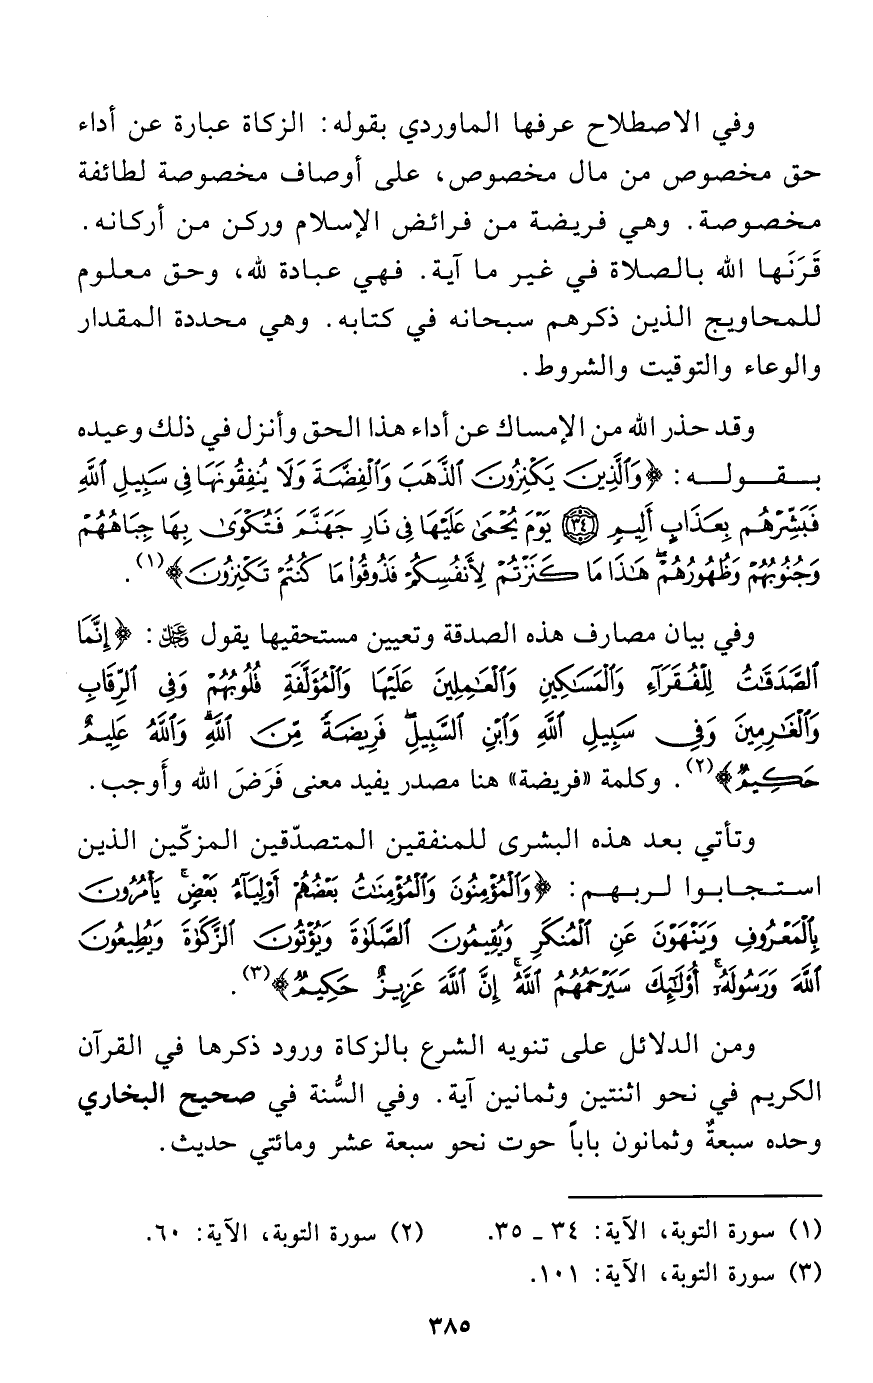 وفي الاصطلاح عرفها الماوردي بقوله: الزكاة عبارة عن أداء
حق مخصوص من مال مخصوص، على أوصاف مخصوصة لطائفة
مخصوصة. وهي فريضة من فرائض الإسلام وركن من أركانه.
قَرَنَها الله بالصلاة في غير ما آية. فهي عبادة لله، وحق معلوم
للمحاويج الذين ذكرهم سبحانه في كتابه. وهي محددة المقدار
والوعاء والتوقيت والشروط.
وقد حذر الله من الإمساك عن أداء هذا الحق وأنزل في ذلك وعيده
بقوله: ﴿وَٱلَّذِينَ يَكْنِزُونَ ٱلذَّهَبَ وَٱلْفِضَّةَ وَلَا يُنفِقُونَهَا فِى سَبِيلِ ٱللَّهِ
فَبَشِّرْهُم بِعَذَابٍ أَلِيمٍ ٣٤ يَوْمَ يُحْمَىٰ عَلَيْهَا فِى نَارِ جَهَنَّمَ فَتُكْوَىٰ بِهَا جِبَاهُهُمْ
وَجُنُوبُهُمْ وَظُهُورُهُمْ ۖ هَٰذَا مَا كَنَزْتُمْ لِأَنفُسِكُمْ فَذُوقُوا۟ مَا كُنتُمْ تَكْنِزُونَ﴾(١).
وفي بيان مصارف هذه الصدقة وتعيين مستحقيها يقول ﷻ: ﴿إِنَّمَا
ٱلصَّدَقَٰتُ لِلْفُقَرَآءِ وَٱلْمَسَٰكِينِ وَٱلْعَٰمِلِينَ عَلَيْهَا وَٱلْمُؤَلَّفَةِ قُلُوبُهُمْ وَفِى ٱلرِّقَابِ
وَٱلْغَٰرِمِينَ وَفِى سَبِيلِ ٱللَّهِ وَٱبْنِ ٱلسَّبِيلِ ۖ فَرِيضَةً مِّنَ ٱللَّهِ ۗ وَٱللَّهُ عَلِيمٌ
حَكِيمٌ﴾(٢). وكلمة «فريضة» هنا مصدر يفيد معنى فَرَضَ الله وأَوجب.
وتأتي بعد هذه البشرى للمنفقين المتصدّقين المزكّين الذين
استجابوا لربهم: ﴿وَٱلْمُؤْمِنُونَ وَٱلْمُؤْمِنَٰتُ بَعْضُهُمْ أَوْلِيَآءُ بَعْضٍ ۚ يَأْمُرُونَ
بِٱلْمَعْرُوفِ وَيَنْهَوْنَ عَنِ ٱلْمُنكَرِ وَيُقِيمُونَ ٱلصَّلَوٰةَ وَيُؤْتُونَ ٱلزَّكَوٰةَ وَيُطِيعُونَ
ٱللَّهَ وَرَسُولَهُۥٓ ۚ أُو۟لَٰٓئِكَ سَيَرْحَمُهُمُ ٱللَّهُ ۗ إِنَّ ٱللَّهَ عَزِيزٌ حَكِيمٌ﴾(٣).
ومن الدلائل على تنويه الشرع بالزكاة ورود ذكرها في القرآن
الكريم في نحو اثنتين وثمانين آية. وفي السُّنة في صحيح البخاري
وحده سبعةٌ وثمانون باباً حوت نحو سبعة عشر ومائتي حديث.
(١) سورة التوبة، الآية: ٣٤ - ٣٥. (٢) سورة التوبة، الآية: ٦٠.
(٣) سورة التوبة، الآية: ١٠١.
٣٨٥